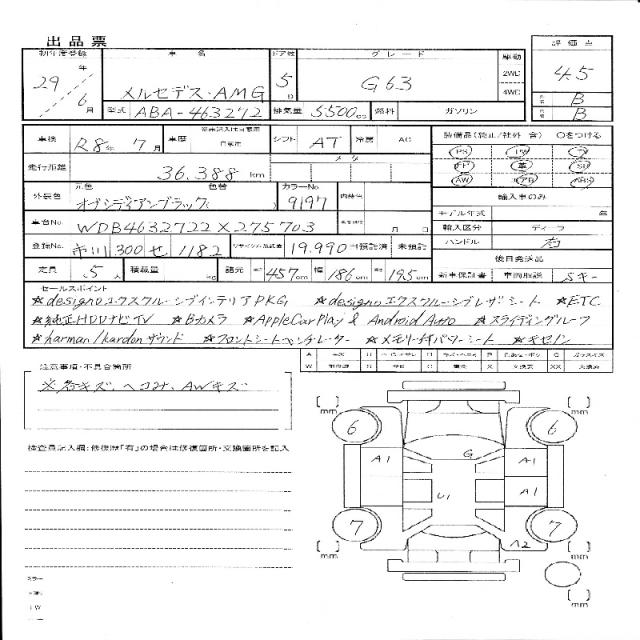 出品票
初年度登録 車名 ドア数 グレード 駆動 評価点
29年 6月 メルセデス・AMG 5D G63 2WD 4WD 4.5
B
B
型式 ABA-463272 排気量 5500cc 燃料 ガソリン
車検 R8年 7月 車歴 自家用 シフト AT 冷房 AC 装備品(純正/社外 含) ○をつける
PS PW
走行距離 36,388 km メータ
AW ABS
外装色 元色 色替 カラーNo
オブシディアンブラック( ) 9197
輸入車のみ
車台No WDB4632722X275703 月 日
モデル年式 年
輸入区分 ディーラ
ハンドル 右
登録No 市川 300 せ 1182 リサイクル預託金 19,990 預託済 未預託
後日発送品
定員 5人 積載量 kg 諸元 457cm 幅 186cm 195cm
新車保証書 車両取説 Sキー
セールスポイント
☆designoエクスクルーシブインテリアPKG ☆designoエクスクルーシブレザーシート ☆ETC
☆純正HDDナビTV ☆Bカメラ ☆AppleCarPlay & Android Auto ☆スライディングルーフ
☆harman/kardonサウンド ☆フロントシートベンチレーター ☆メモリー付パワーシート ☆キセノン
注意事項・不具合箇所
※若キズ、ヘコミ、AWキズ
検査員記入欄:修復歴「有」の場合は修復箇所・交換箇所を記入
mm mm
6 6
A1 G A1
U1 A1
7 7
A2
mm mm
mm
ミラー